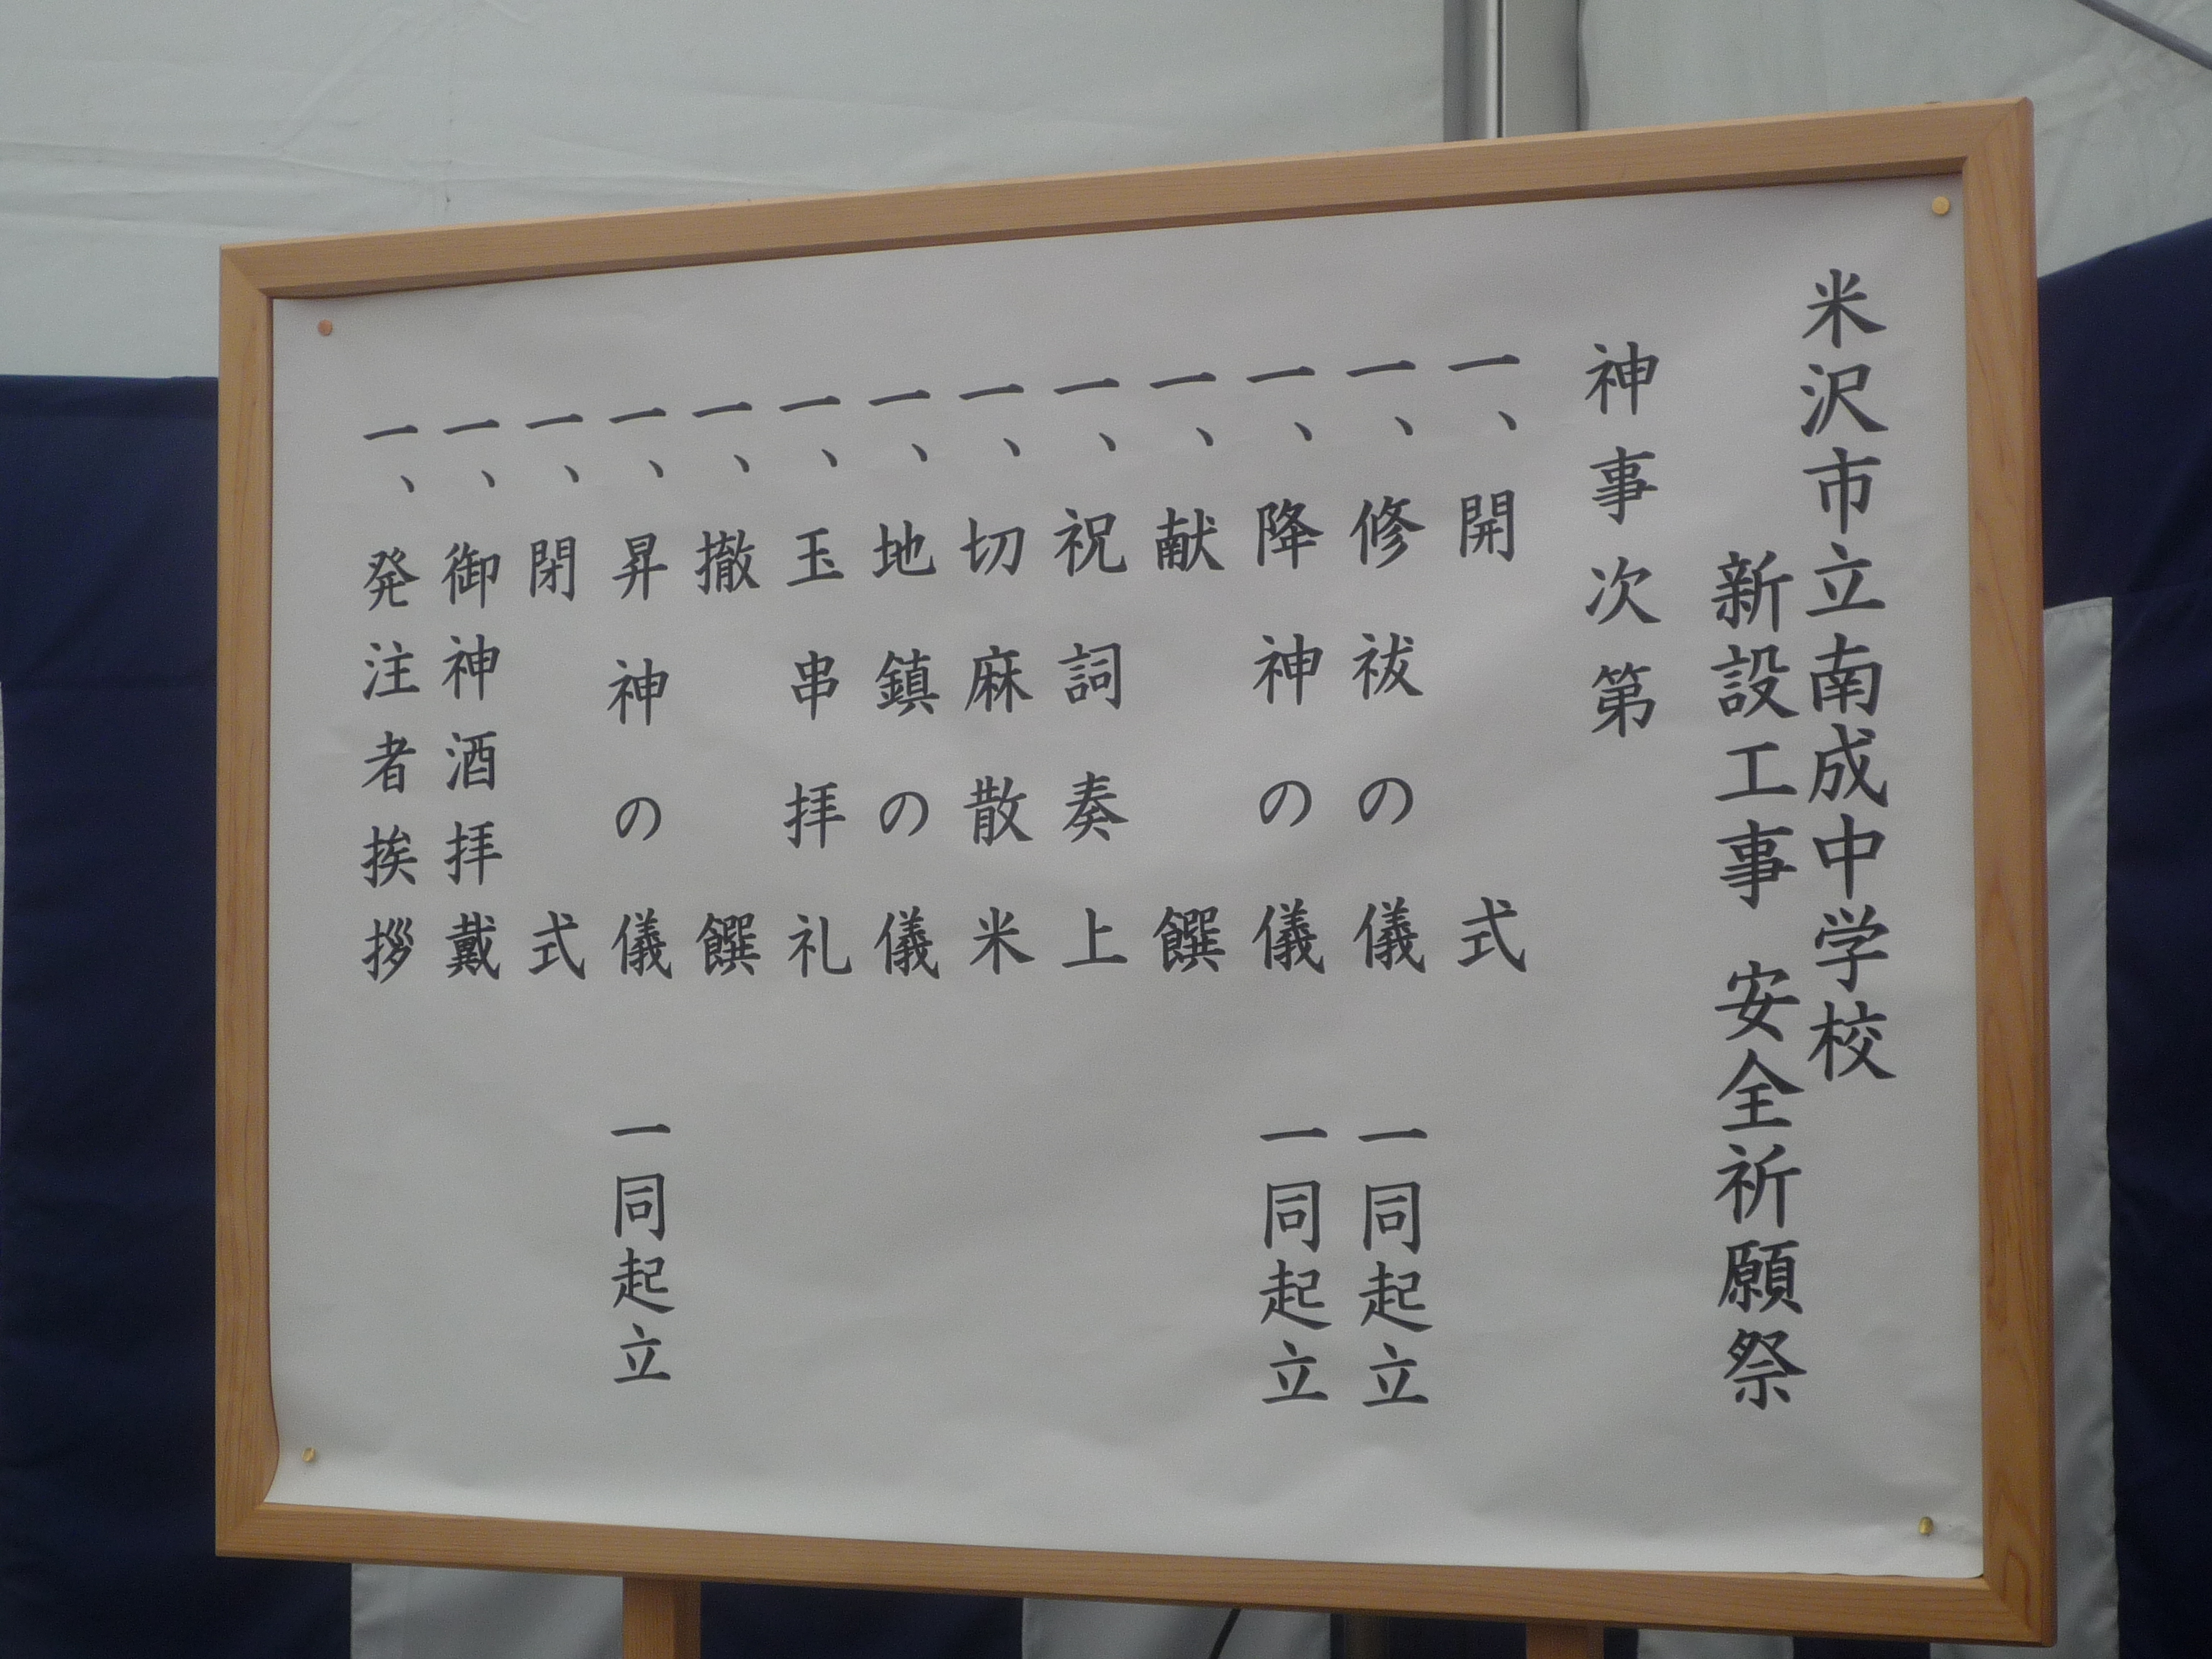 米沢市立南成中学校
新設工事　安全祈願祭
神事次第
一、開式
一、修祓の儀　一同起立
一、降神の儀　一同起立
一、献饌
一、祝詞奏上
一、切麻散米
一、地鎮の儀
一、玉串拝礼
一、撤饌
一、昇神の儀　一同起立
一、閉式
一、御神酒拝戴
一、発注者挨拶